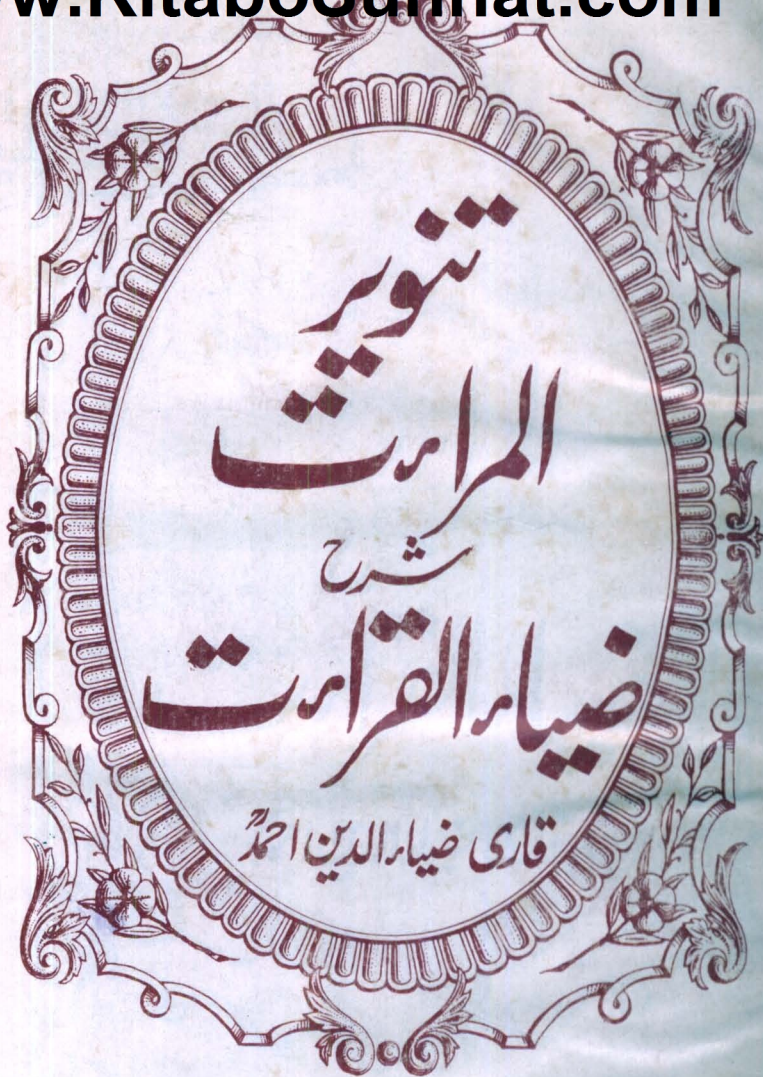 www.KitaboSunnat.com
تنویر
المراءت
شرح
ضیاء القراءت
قاری ضیاء الدین احمدؒ